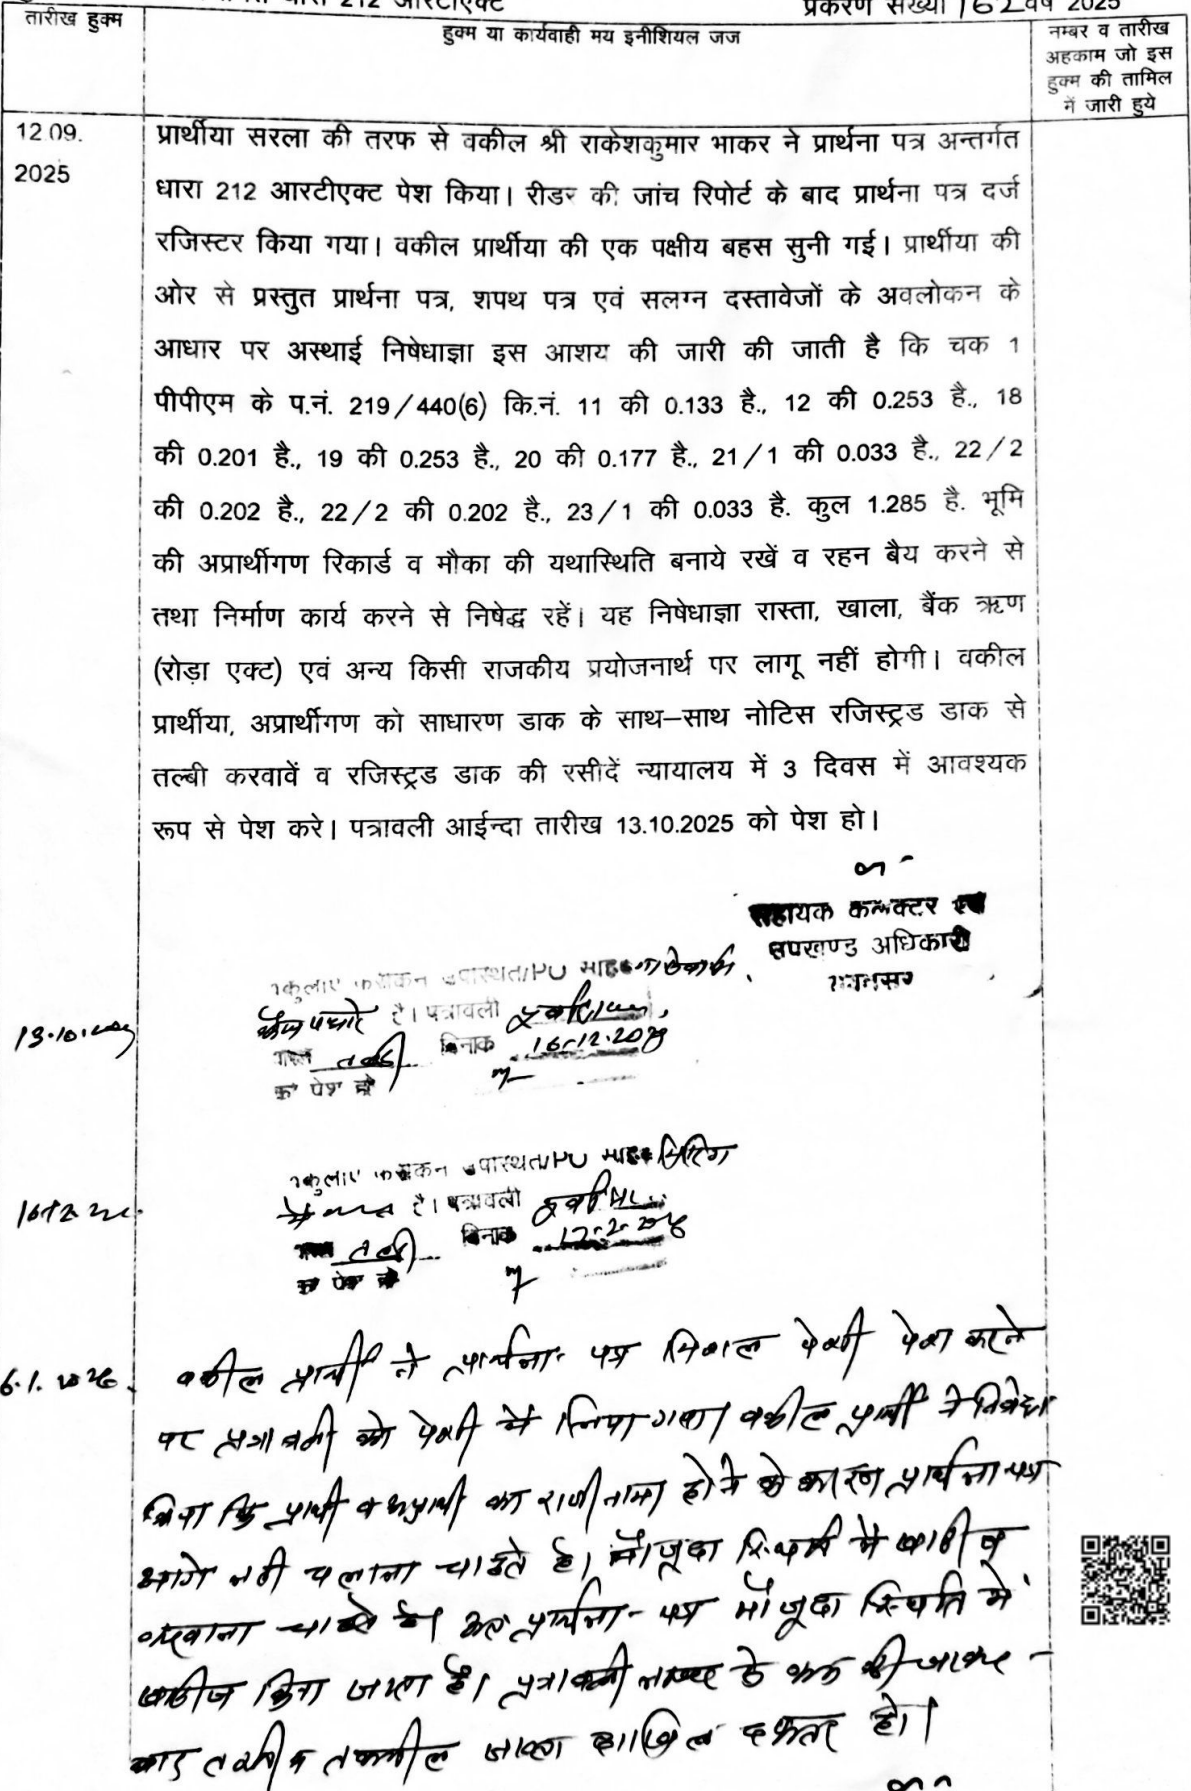 धारा 212 आरटीएक्ट
प्रकरण संख्या 162 वर्ष 2025
तारीख हुक्म
हुक्म या कार्यवाही मय इनीशियल जज
नम्बर व तारीख
अहकाम जो इस
हुक्म की तामिल
में जारी हुये
12.09.
2025
प्रार्थीया सरला की तरफ से वकील श्री राकेशकुमार भाकर ने प्रार्थना पत्र अन्तर्गत
धारा 212 आरटीएक्ट पेश किया। रीडर की जांच रिपोर्ट के बाद प्रार्थना पत्र दर्ज
रजिस्टर किया गया। वकील प्रार्थीया की एक पक्षीय बहस सुनी गई। प्रार्थीया की
ओर से प्रस्तुत प्रार्थना पत्र, शपथ पत्र एवं सलग्न दस्तावेजों के अवलोकन के
आधार पर अस्थाई निषेधाज्ञा इस आशय की जारी की जाती है कि चक 1
पीपीएम के प.नं. 219/440(6) कि.नं. 11 की 0.133 है., 12 की 0.253 है., 18
की 0.201 है., 19 की 0.253 है., 20 की 0.177 है., 21/1 की 0.033 है., 22/2
की 0.202 है., 22/2 की 0.202 है., 23/1 की 0.033 है. कुल 1.285 है. भूमि
की अप्रार्थीगण रिकार्ड व मौका की यथास्थिति बनाये रखें व रहन बैय करने से
तथा निर्माण कार्य करने से निषेद्ध रहें। यह निषेधाज्ञा रास्ता, खाला, बैंक ऋण
(रोड़ा एक्ट) एवं अन्य किसी राजकीय प्रयोजनार्थ पर लागू नहीं होगी। वकील
प्रार्थीया, अप्रार्थीगण को साधारण डाक के साथ–साथ नोटिस रजिस्ट्रड डाक से
तल्बी करवावें व रजिस्ट्रड डाक की रसीदें न्यायालय में 3 दिवस में आवश्यक
रूप से पेश करे। पत्रावली आईन्दा तारीख 13.10.2025 को पेश हो।
सहायक कलक्टर एवं
उपखण्ड अधिकारी
उपस्थित/PO
है। पत्रावली
दिनांक 16-12-2025
को पेश हो
उपस्थित/PO
है। पत्रावली
दिनांक
को पेश हो
वकील प्रार्थी ने प्रार्थना पत्र मिशल पेशी पेश करने
पर पत्रावली को पेशी में लिया गया। वकील प्रार्थी ने निवेदन
किया कि प्रार्थी व अप्रार्थी का राजीनामा होने के कारण प्रार्थना पत्र
आगे नहीं चलाना चाहते है। मौजूदा स्थिति में खारीज
करवाना चाहते है। अतः प्रार्थना-पत्र मौजूदा स्थिति में
खारीज किया जाता है। पत्रावली नम्बर से कम की जाकर
बाद तकमील दाखिल दफ्तर हो।